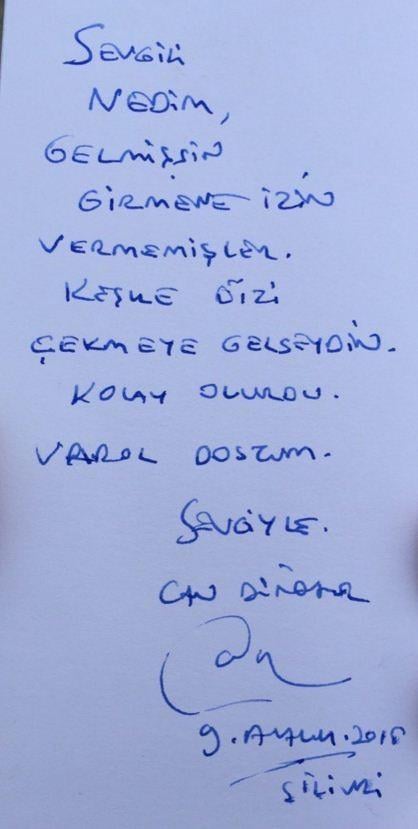 SEVGİLİ
NEDİM,
GELMİŞSİN
GİRMENE İZİN
VERMEMİŞLER.
KEŞKE DİZİ
ÇEKMEYE GELSEYDİN.
KOLAY OLURDU.
VAROL DOSTUM.
SEVGİYLE.
CAN DÜNDAR
9. ARALIK. 2015
SİLİVRİ